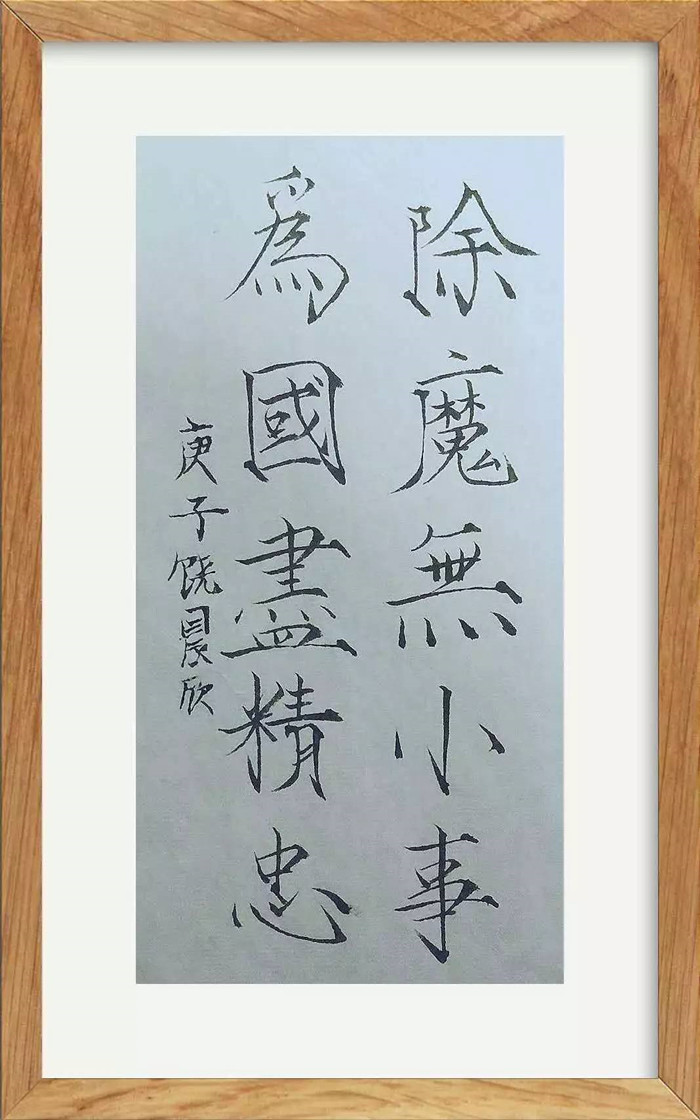 除魔無小事
為國盡精忠
庚子饶晨欣